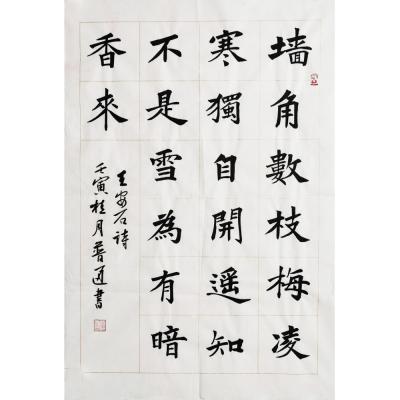 墙角數枝梅凌
寒獨自開遥知
不是雪為有暗
香來
王安石诗
壬寅桂月普通書